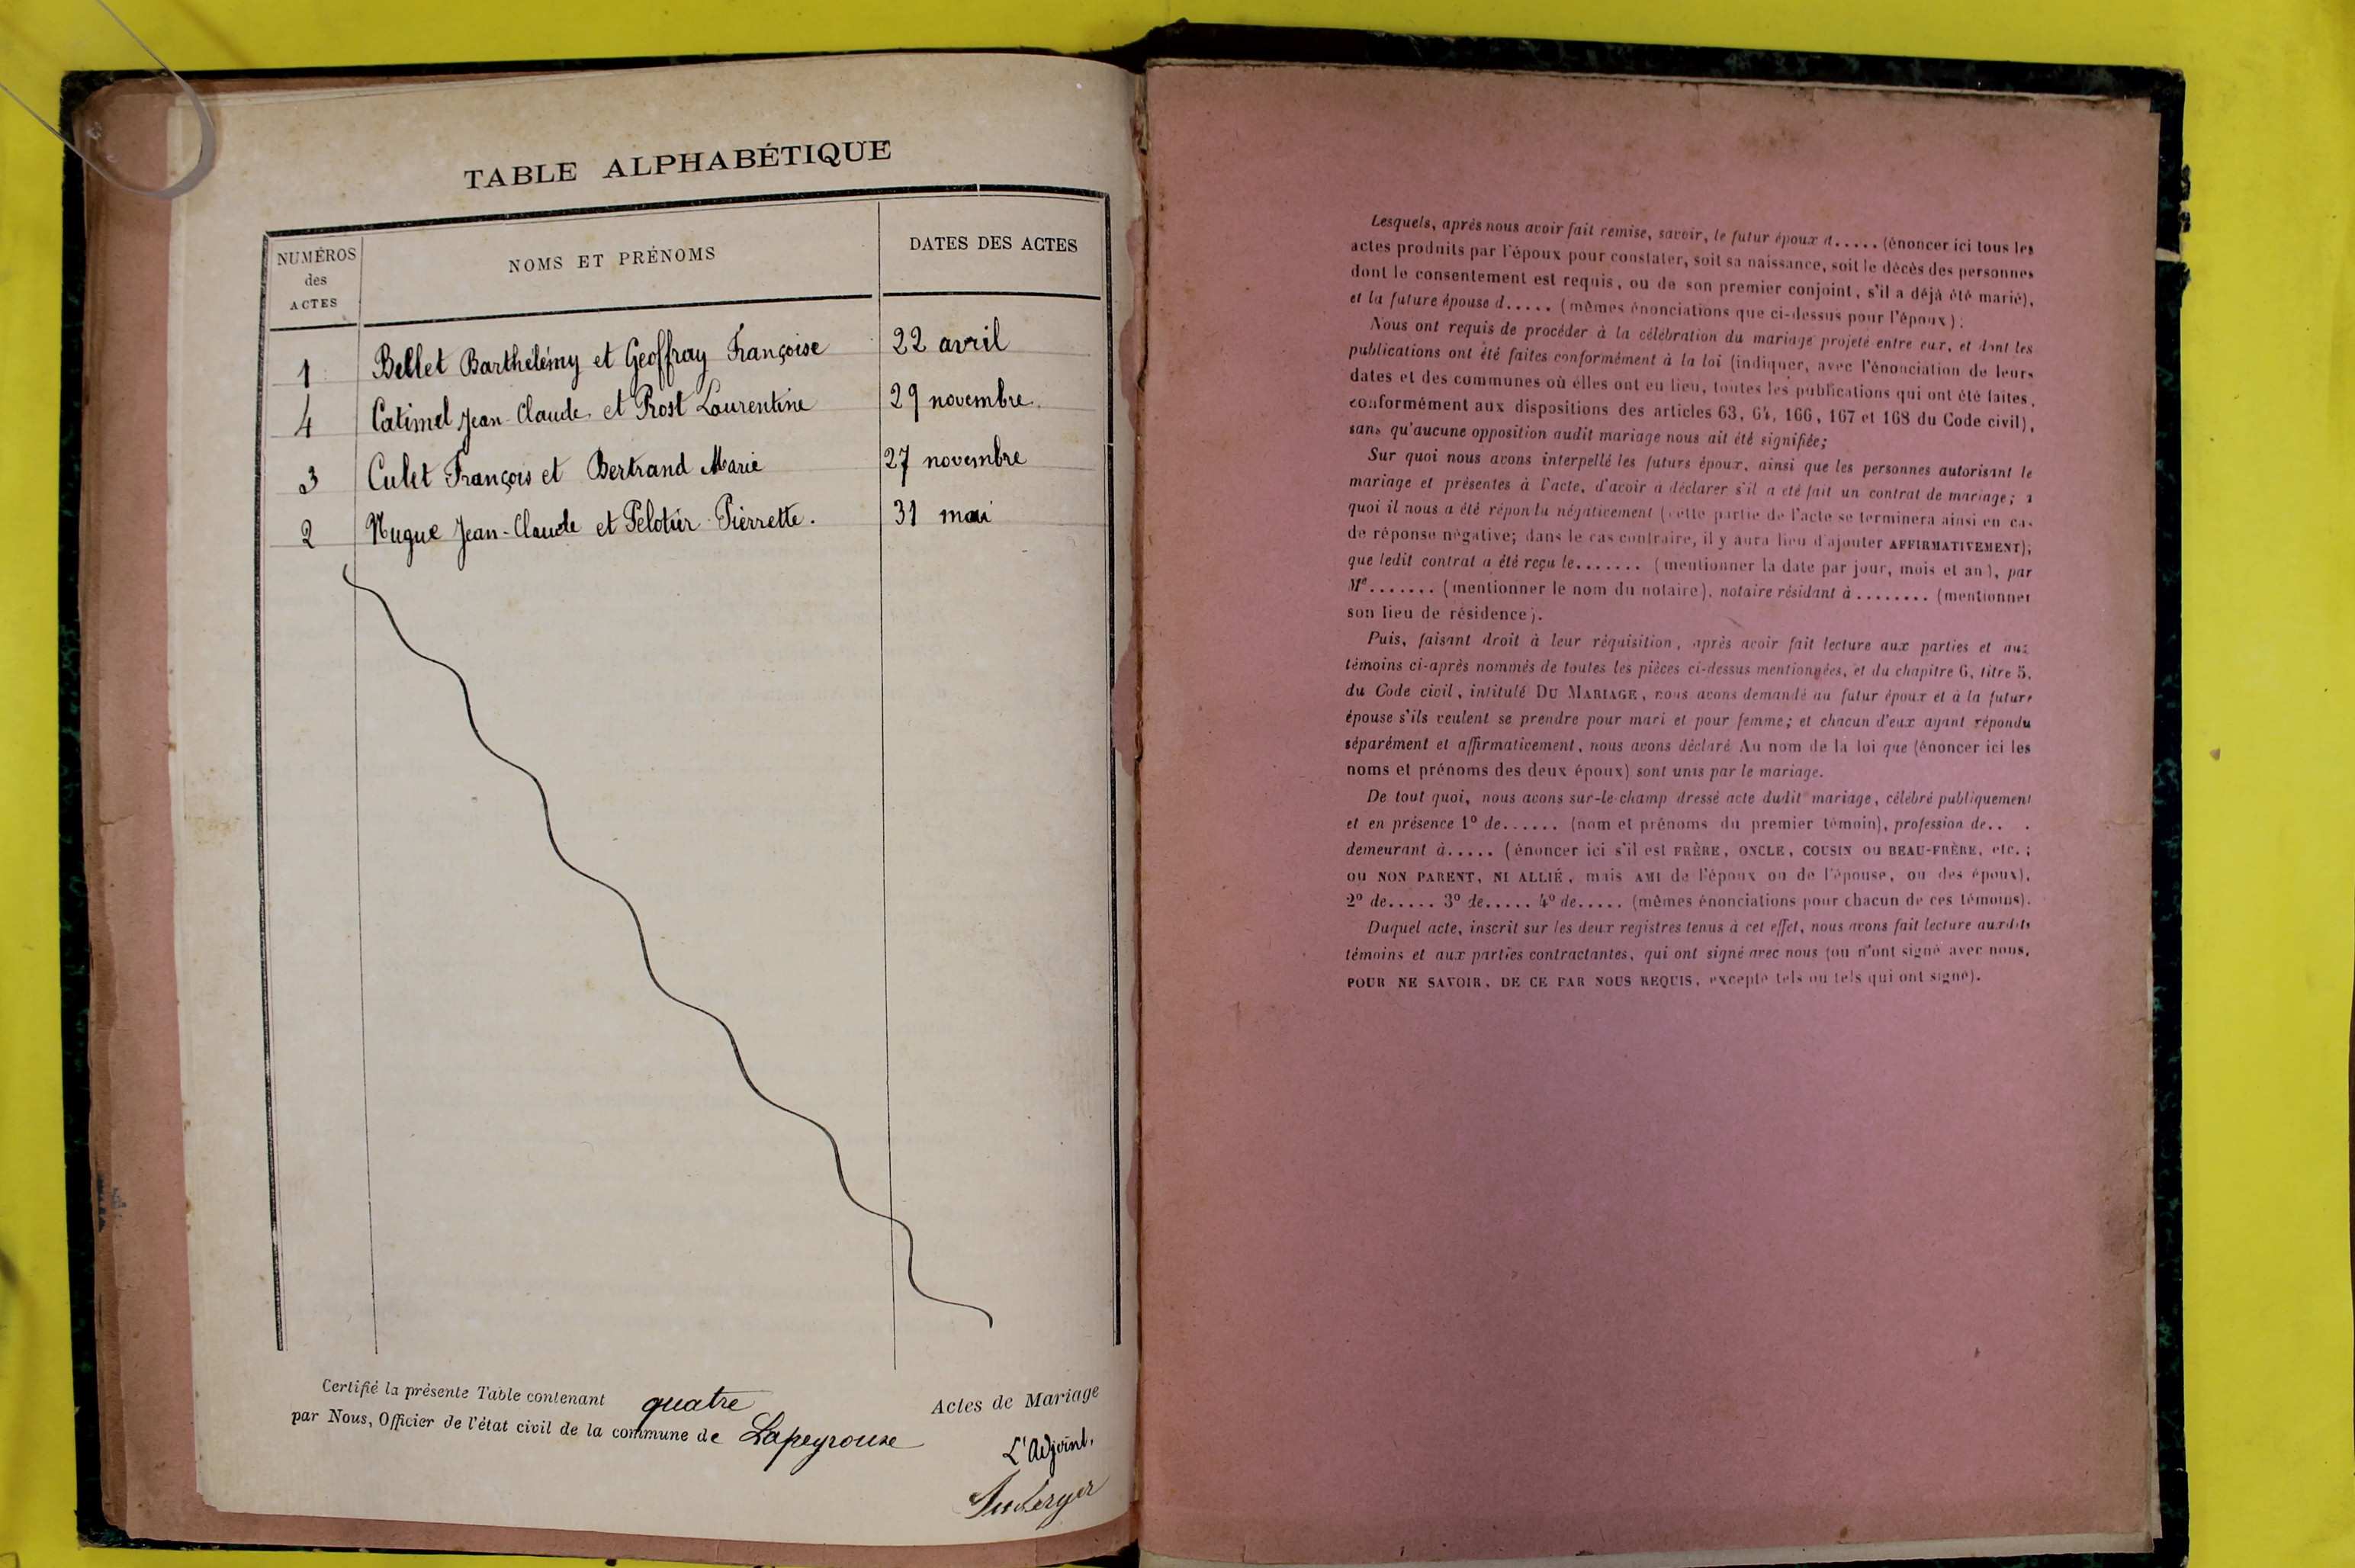 TABLE ALPHABÉTIQUE
NUMÉROS
des
ACTES
NOMS ET PRÉNOMS
DATES DES ACTES
1 Bellet Barthélémy et Geoffray Françoise 22 avril
4 Catimel Jean-Claude et Prost Laurentine 29 novembre
3 Culet François et Bertrand Marie 27 novembre
2 Hugue Jean-Claude et Pelotier Pierrette. 31 mai
Certifié la présente Table contenant quatre Actes de Mariage
par Nous, Officier de l'état civil de la commune de Lapeyrouse
L'Adjoint,
Lesquels, après nous avoir fait remise, savoir, le futur époux d..... (énoncer ici tous les
actes produits par l'époux pour constater, soit sa naissance, soit le décès des personnes
dont le consentement est requis, ou de son premier conjoint, s'il a déjà été marié),
et la future épouse d..... (mêmes énonciations que ci-dessus pour l'époux);
Nous ont requis de procéder à la célébration du mariage projeté entre eux, et dont les
publications ont été faites conformément à la loi (indiquer, avec l'énonciation de leurs
dates et des communes où elles ont eu lieu, toutes les publications qui ont été faites,
conformément aux dispositions des articles 63, 64, 166, 167 et 168 du Code civil),
sans qu'aucune opposition audit mariage nous ait été signifiée;
Sur quoi nous avons interpellé les futurs époux, ainsi que les personnes autorisant le
mariage et présentes à l'acte, d'avoir à déclarer s'il a été fait un contrat de mariage; à
quoi il nous a été répondu négativement (cette partie de l'acte se terminera ainsi en cas
de réponse négative; dans le cas contraire, il y aura lieu d'ajouter AFFIRMATIVEMENT);
que ledit contrat a été reçu le....... (mentionner la date par jour, mois et an), par
Me....... (mentionner le nom du notaire), notaire résidant à ........ (mentionner
son lieu de résidence).
Puis, faisant droit à leur réquisition, après avoir fait lecture aux parties et aux
témoins ci-après nommés de toutes les pièces ci-dessus mentionnées, et du chapitre 6, titre 5,
du Code civil, intitulé DU MARIAGE, nous avons demandé au futur époux et à la future
épouse s'ils veulent se prendre pour mari et pour femme; et chacun d'eux ayant répondu
séparément et affirmativement, nous avons déclaré Au nom de la loi que (énoncer ici les
noms et prénoms des deux époux) sont unis par le mariage.
De tout quoi, nous avons sur-le-champ dressé acte dudit mariage, célébré publiquement
et en présence 1º de...... (nom et prénoms du premier témoin), profession de.. .
demeurant à..... (énoncer ici s'il est FRÈRE, ONCLE, COUSIN ou BEAU-FRÈRE, etc.;
ou NON PARENT, NI ALLIÉ, mais AMI de l'époux ou de l'épouse, ou des époux),
2º de..... 3º de..... 4º de..... (mêmes énonciations pour chacun de ces témoins).
Duquel acte, inscrit sur les deux registres tenus à cet effet, nous avons fait lecture auxdits
témoins et aux parties contractantes, qui ont signé avec nous (ou n'ont signé avec nous,
POUR NE SAVOIR, DE CE PAR NOUS REQUIS, excepté tels ou tels qui ont signé).